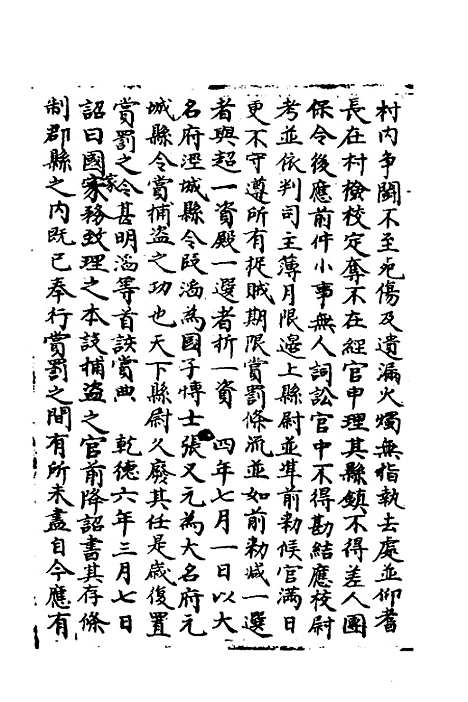 村内爭鬬不至死傷及遺漏火燭無指執去處並仰耆
長在村檢校定奪不在經官申理其縣鎮不得差人團
保令後應前件小事無人詞訟官中不得勘結應校尉
考並依判司主薄月限邉上縣尉並準前勑候官滿日
更不守遵所有捉賊期限賞罰條流並如前勑减一選
者與超一資殿一選者折一資　四年七月一日以大
名府涇城縣令叚滔為國子愽士張又元為大名府元
城縣令賞捕盗之功也天下縣尉久廢其任是歲復置
賞罰之令甚明滔等首該賞典　乾德六年三月七日
詔曰國家務致理之本設捕盗之官前降詔書其存條
制郡縣之内既已奉行賞罰之間有所未盡自今應有